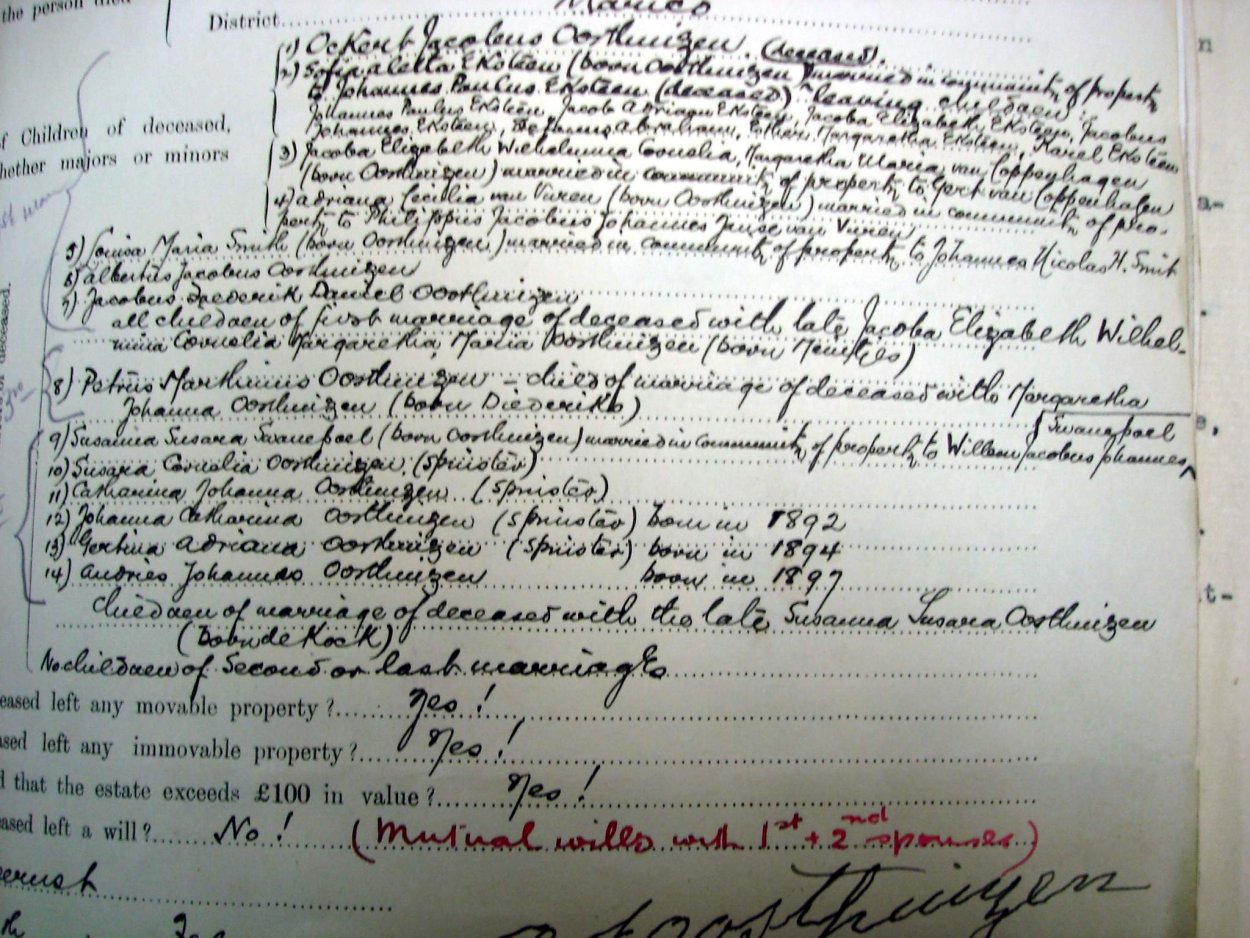 the person died
District Marico
1) Ockert Jacobus Oosthuizen. (deceased).
2) Sofia Aletta Eksteen (born Oosthuizen) married in community of property
to Johannes Paulus Eksteen (deceased) leaving children:
Johannes Paulus Eksteen, Jacob Adriaan Eksteen, Jacoba Elizabeth Eksteen, Jacobus
Johannes Eksteen, Abraham, Esther Margaretha Eksteen, Karel Eksteen
f Children of deceased,
hether majors or minors
3) Jacoba Elizabeth Wilhelmina Cornelia, Margaretha Maria van Coppenhagen
(born Oosthuizen) married in community of property to Gert van Coppenhagen
4) Adriana Cecilia van Vuren (born Oosthuizen) married in community of pro-
perty to Philippus Jacobus Johannes Janse van Vuren
5) Louisa Maria Smith (born Oosthuizen) married in community of property to Johannes Nicolas H. Smit
6) Albertus Jacobus Oosthuizen
7) Jacobus Frederik Daniel Oosthuizen
all children of first marriage of deceased with late Jacoba Elizabeth Wilhel-
mina Cornelia Margaretha Maria Oosthuizen (born Meintjes)
8) Petrus Marthinus Oosthuizen - child of marriage of deceased with Margaretha
Johanna Oosthuizen (born Diederiks)
Swanepoel
9) Susanna Susara Swanepoel (born Oosthuizen) married in community of property to Willem Jacobus Johannes
10) Susara Cornelia Oosthuizen (Spinster)
11) Catharina Johanna Oosthuizen (Spinster)
12) Johanna Catharina Oosthuizen (Spinster) born in 1892
13) Gertina Adriana Oosthuizen (Spinster) born in 1894
14) Andries Johannes Oosthuizen born in 1897
Children of marriage of deceased with the late Susanna Susara Oosthuizen
(Born de Kock)
No children of Second or last marriages
eased left any movable property? Yes!
ased left any immovable property? Yes!
d that the estate exceeds £100 in value? Yes!
ased left a will? No! (Mutual wills with 1st + 2nd spouses)
Oosthuizen